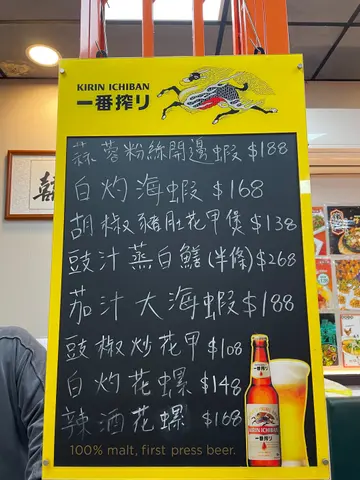 KIRIN ICHIBAN
一番搾り
蒜蓉粉絲開邊蝦 $188
白灼海蝦 $168
胡椒豬肚花甲煲 $138
豉汁蒸白鱔(半條) $268
茄汁大海蝦 $188
豉椒炒花甲 $108
白灼花螺 $148
辣酒花螺 $168
100% malt, first press beer.
KIRIN
一番搾り
KIRIN